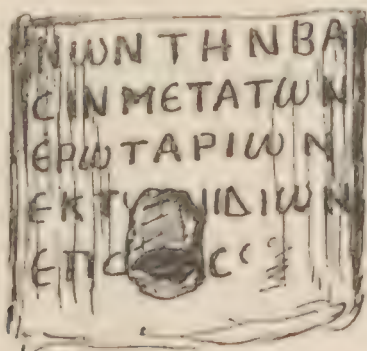 ΝωΝΤΗΝΒΑ
CΙΝΜΕΤΑΤωΝ
ΕΡωΤΑΡΙωΝ
ΕΚΤ ΙΔΙωΝ
ΕΠ